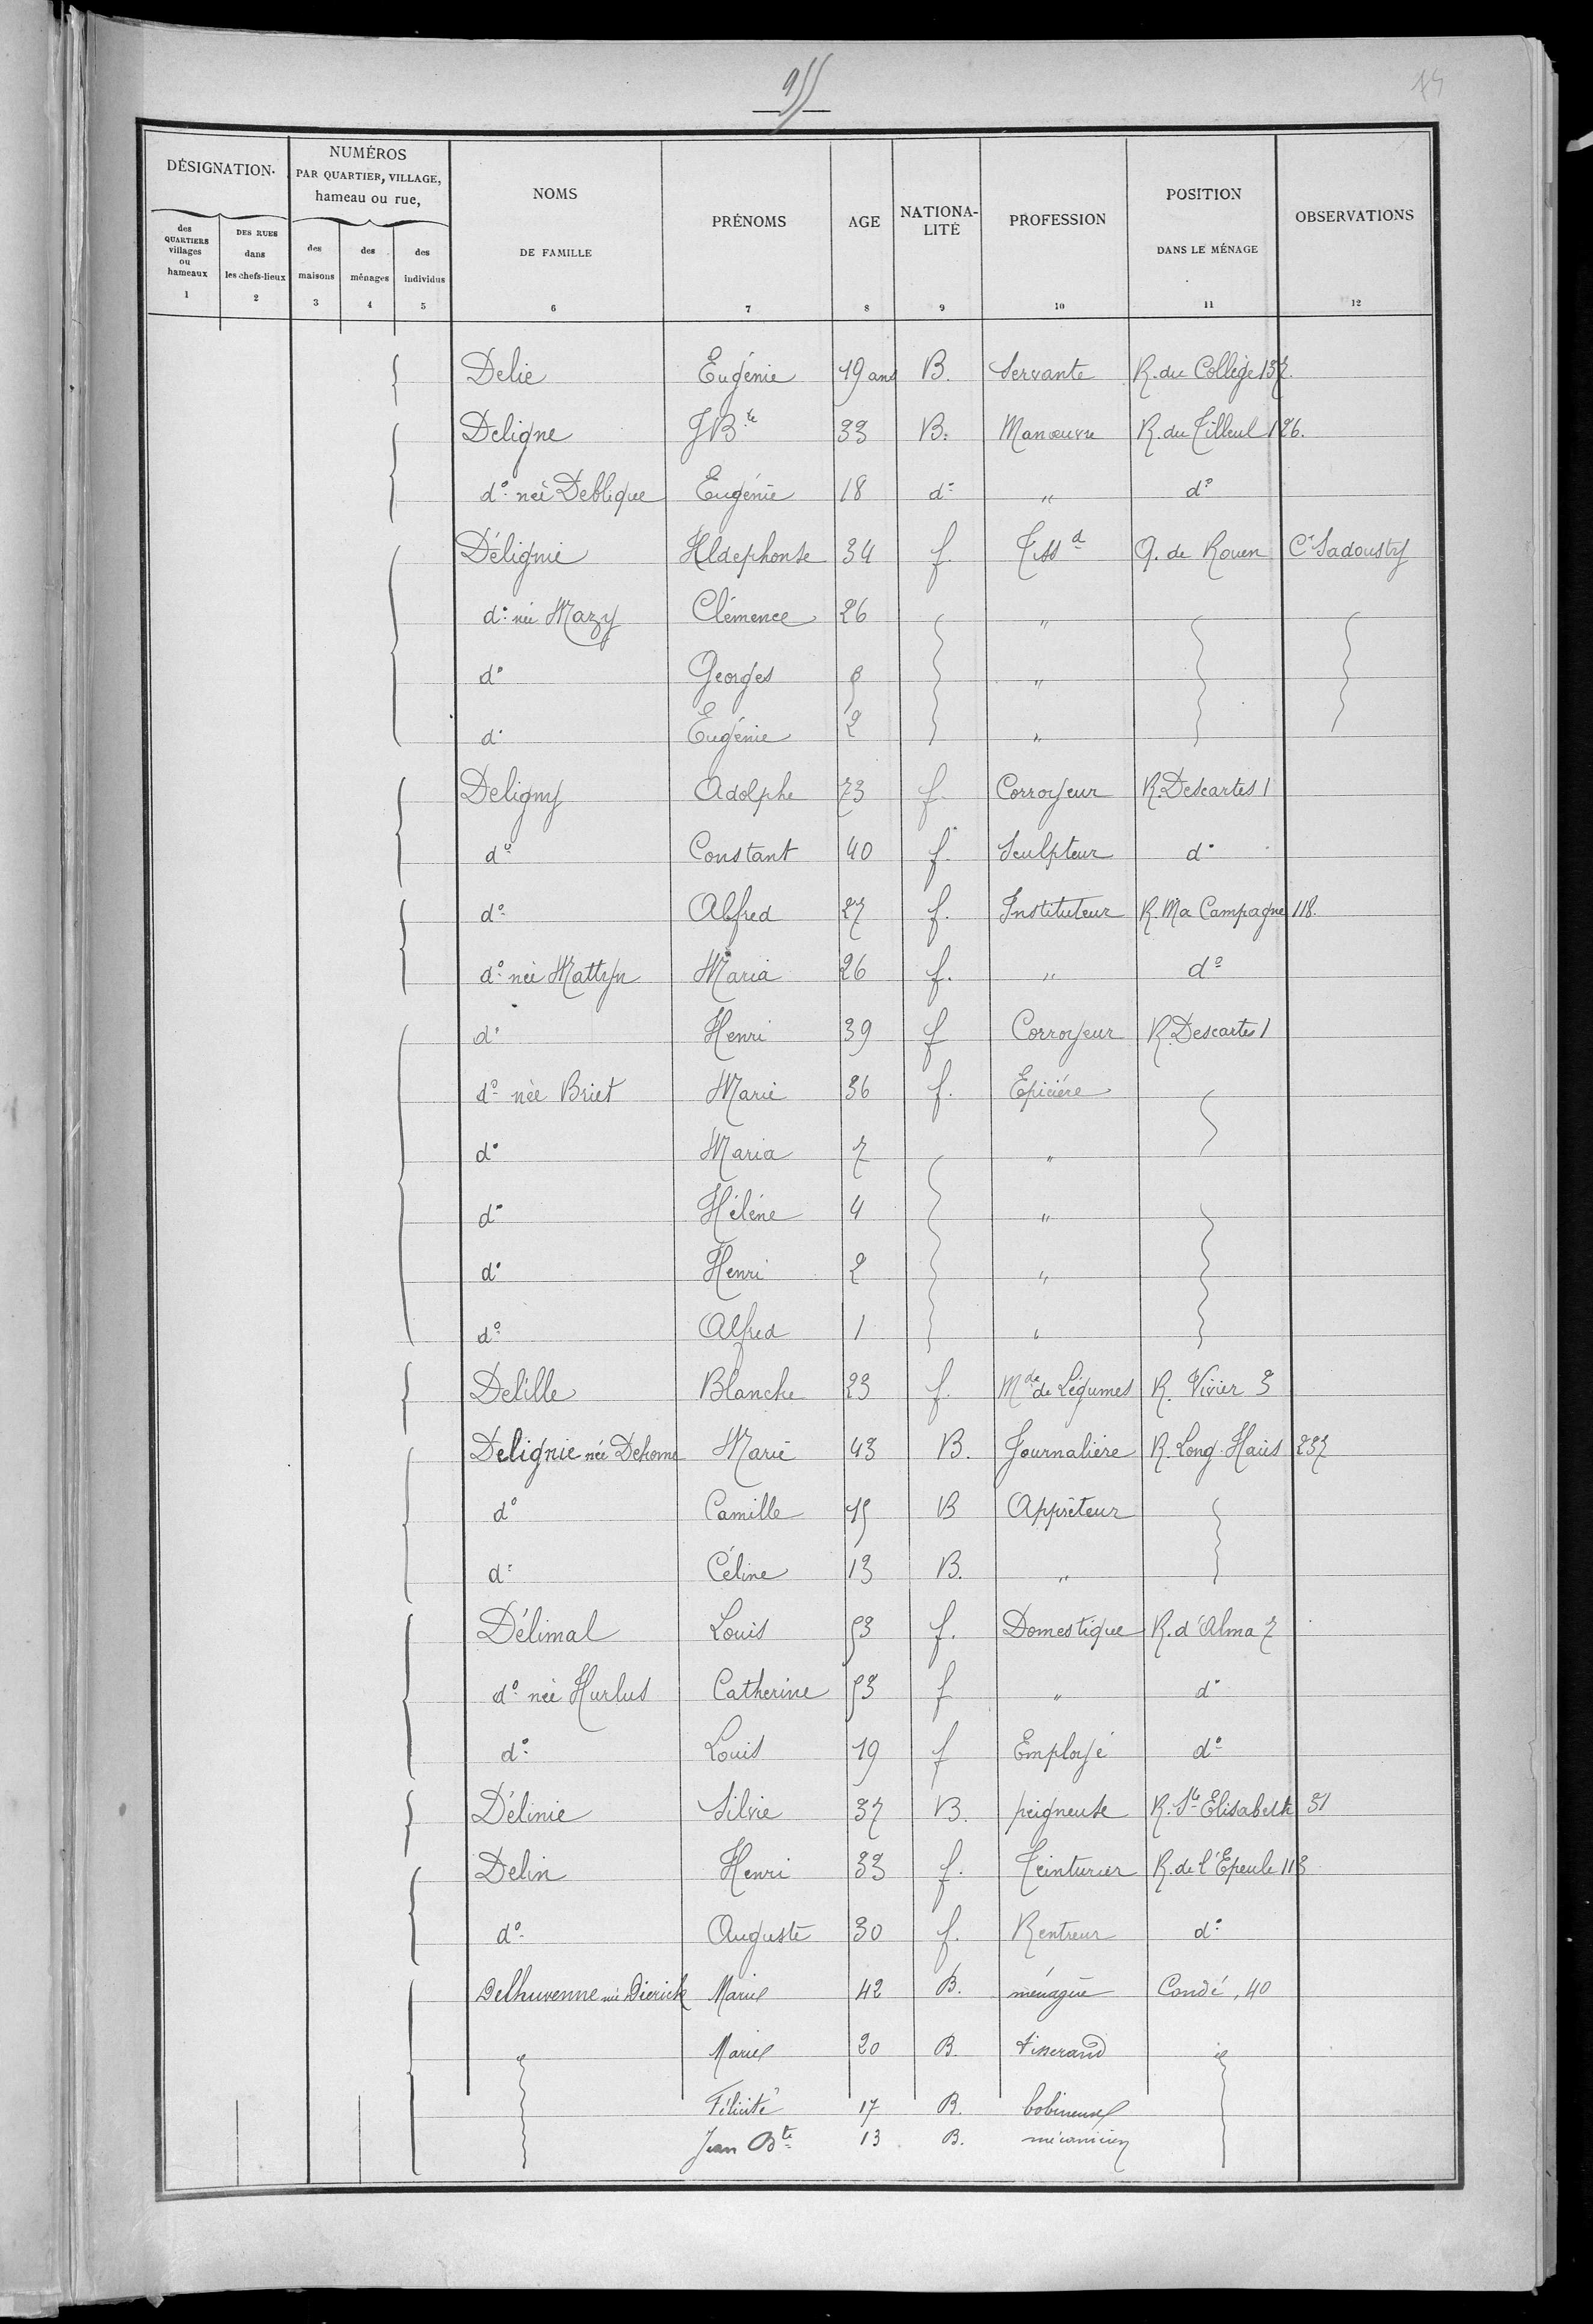 955
DÉSIGNATION.
NUMÉROS PAR QUARTIER, VILLAGE, hameau ou rue,
NOMS DE FAMILLE
PRÉNOMS
AGE
NATIONA-LITÉ
PROFESSION
POSITION DANS LE MÉNAGE
OBSERVATIONS
des QUARTIERS villages ou hameaux
DES RUES dans les chefs-lieux
des maisons
des ménages
des individus
1 2 3 4 5 6 7 8 9 10 11 12
Delie Eugénie 19 ans B. Servante R. du Collège 137.
Deligne JBte 33 B. Manœuvre R. du Tilleul 126.
do née Deblique Eugénie 18 do " do
Délignie Hldephonse 34 f. Tissd Q. de Rouen Cr Sadousty
do née Mazy Clémence 26 "
do Georges "
do Eugénie 2 "
Deligny Adolphe 73 f. Corroyeur R. Descartes 1
do Constant 40 f. Sculpteur do
do Alfred 27 f. Instituteur R. Ma Campagne 118.
do née Mattyn Maria 26 f. " do
do Henri 39 f Corroyeur R. Descartes 1
do née Briet Marie 36 f. Epicière
do Maria 7 "
do Hélène 4 "
do Henri 2 "
do Alfred 1 "
Delille Blanche 23 f. Mde de Légumes R. Vivier 3
Delignie née Dehorne Marie 43 B. Journalière R. Long. Haies 237
do Camille 15 B Apprêteur
do Céline 13 B. "
Délimal Louis 53 f. Domestique R. d'Alma 7
do née Hurlus Catherine 53 f " do
do Louis 19 f Employé do
Délinie Silvie 37 B. peigneuse R. Ste Elisabeth 31
Delin Henri 33 f. Teinturier R. de l'Epeule 113
do Auguste 30 f. Rentreur do
Delhuvenne née Dierick Marie 42 B. ménagère Condé, 40
" Marie 20 B. tisserand "
Félicité 17 B. bobineuse
Jean Bte 13 B. mécanicien